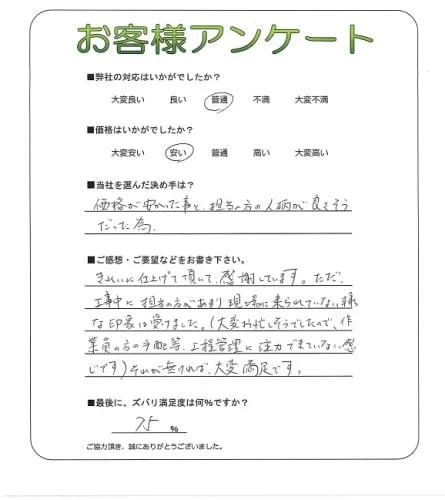 お客様アンケート
■弊社の対応はいかがでしたか?
大変良い 良い 普通 不満 大変不満
■価格はいかがでしたか?
大変安い 安い 普通 高い 大変高い
■当社を選んだ決め手は?
価格が安かった事と、担当の方の人柄が良さそう
だった為。
■ご感想・ご要望などをお書き下さい。
きれいに仕上げて頂いて、感謝しています。ただ、
工事中に担当の方があまり現場に来られていない様
な印象は受けました。(大変お忙しそうでしたので、作
業員の方の手配等、工程管理に注力できていない感
じです)それが無ければ、大変満足です。
■最後に、ズバリ満足度は何%ですか?
75 %
ご協力頂き、誠にありがとうございました。